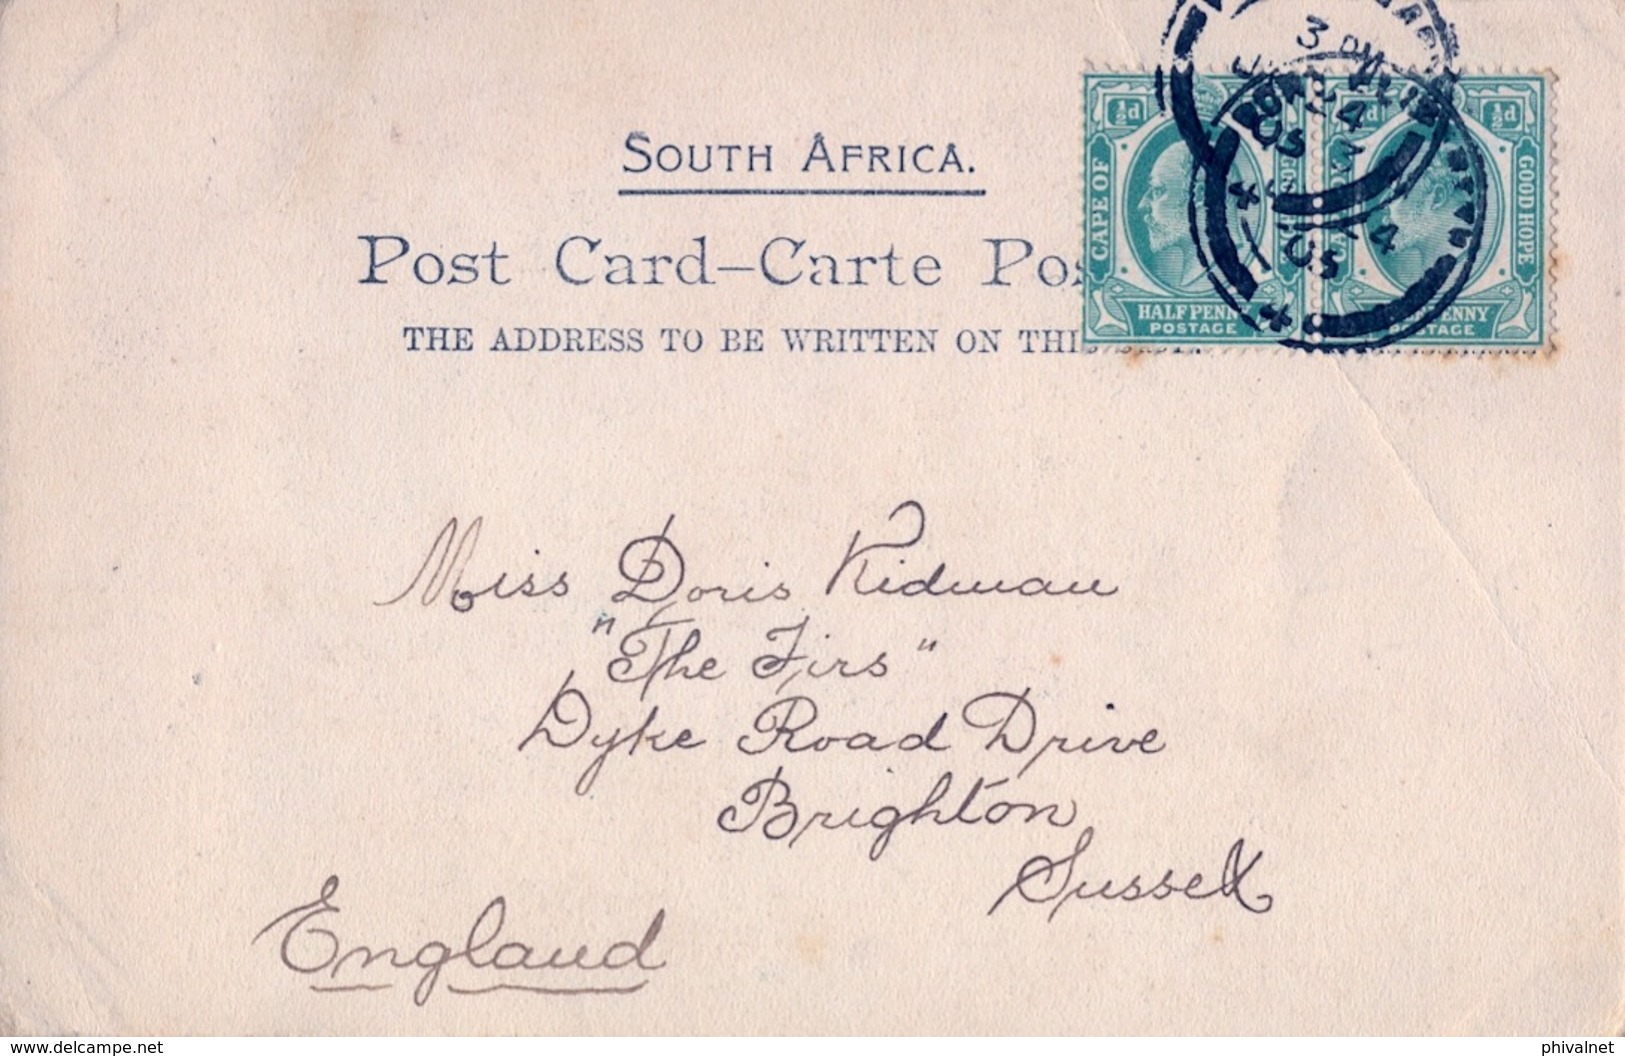 SOUTH AFRICA.
Post Card–Carte Pos
THE ADDRESS TO BE WRITTEN ON THI
½d
½d
CAPE OF
GOOD HOPE
HALFPENN
POSTAGE
PENNY
POSTAGE
3 PM
24
05
4
05
Miss Doris Kidman
"The Firs"
Dyke Road Drive
Brighton
Sussex
England
www.delcampe.net
phivalnet